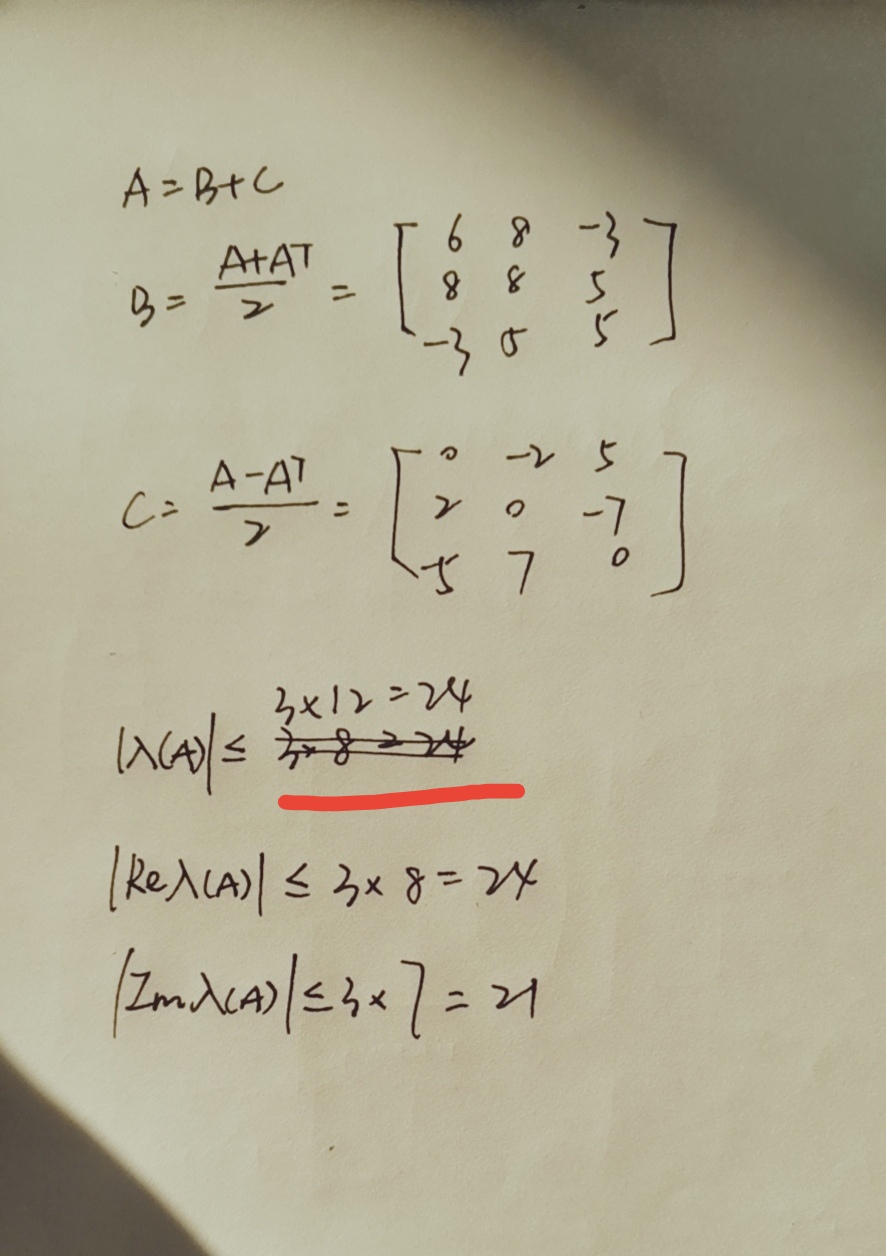 A=B+C
B= A+AT/2 = [ 6 8 -3
8 8 5
-3 5 5 ]
C= A-AT/2 = [ 0 -2 5
2 0 -7
-5 7 0 ]
3×12=24
|λ(A)| ≤ 3×8=24
|Reλ(A)| ≤ 3×8=24
|Imλ(A)| ≤ 3×7=21